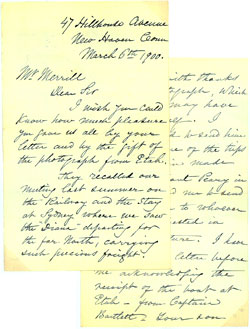 47 Hillhouse Avenue
New Haven Conn
March 6th 1900.
Mr Merrill
Dear Sir
I wish you could
know how much pleasure
you gave us all by your
letter and by the gift of
the photograph from Etah.
They recalled our
meeting last summer on
the Railway and the stay
at Sydney where we saw
the Diana departing for
the far North, carrying
such precious freight.
with thanks
tograph. Which
may have
I
to send him
one of the trips
made
Peary in
me to send
to whoever
ested in
ture. I
letter before
me acknowledging the
receipt of the boat at
Etah - from Captain
Bartlett - Your son